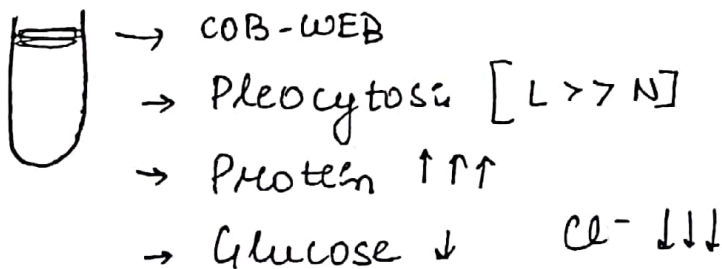 → COB-WEB
→ Pleocytosis [L >> N]
→ Protein ↑↑↑
→ Glucose ↓ Cl- ↓↓↓